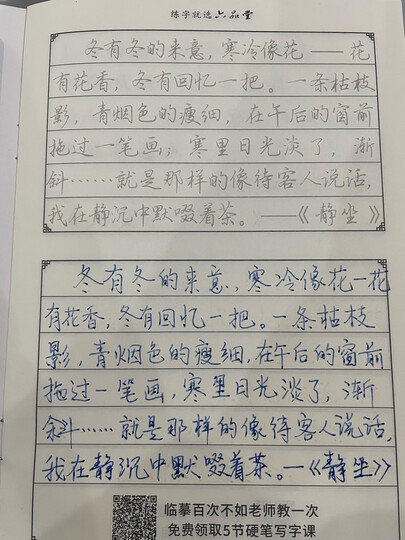 练字就选六品堂
冬有冬的来意，寒冷像花——花
有花香，冬有回忆一把。一条枯枝
影，青烟色的瘦细，在午后的窗前
拖过一笔画；寒里日光淡了，渐
斜……就是那样的像待客人说话，
我在静沉中默啜着茶。——《静坐》
冬有冬的来意，寒冷像花一花
有花香，冬有回忆一把。一条枯枝
影，青烟色的瘦细，在午后的窗前
拖过一笔画，寒里日光淡了，渐
斜……就是那样的像待客人说话，
我在静沉中默啜着茶。—《静坐》
临摹百次不如老师教一次
免费领取5节硬笔写字课